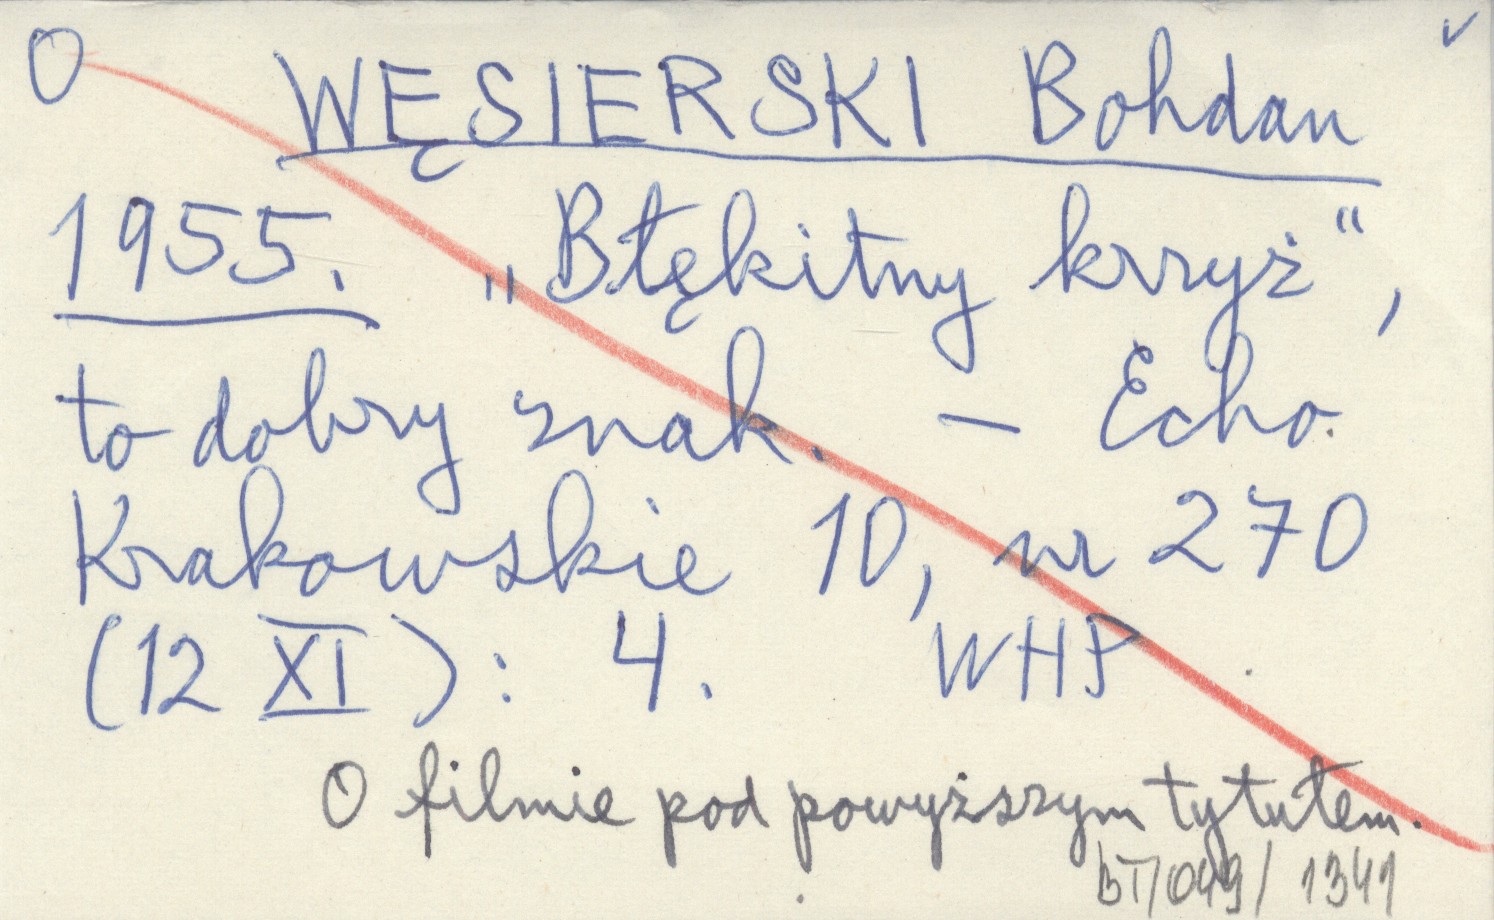 O WĘSIERSKI Bohdan
1955. „Błękitny krzyż“,
to dobry znak. – Echo
Krakowskie 10, nr 270
(12 XI): 4. WHP
O filmie pod powyższym tytułem.
BT/049/1341